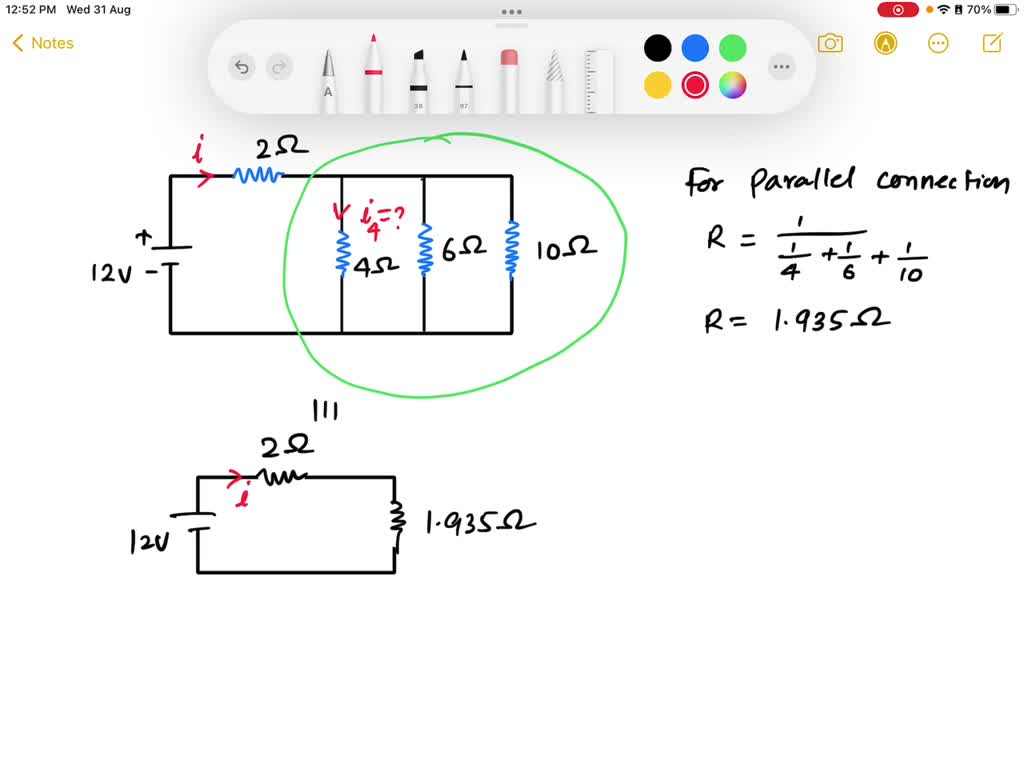 12:52 PM Wed 31 Aug
70%
Notes
A
38
97
i
2Ω
For parallel connection
i₄=?
4Ω
6Ω
10Ω
+
12V -
R = 1 / (1/4 + 1/6 + 1/10)
R = 1.935Ω
2Ω
i
12V
1.935Ω